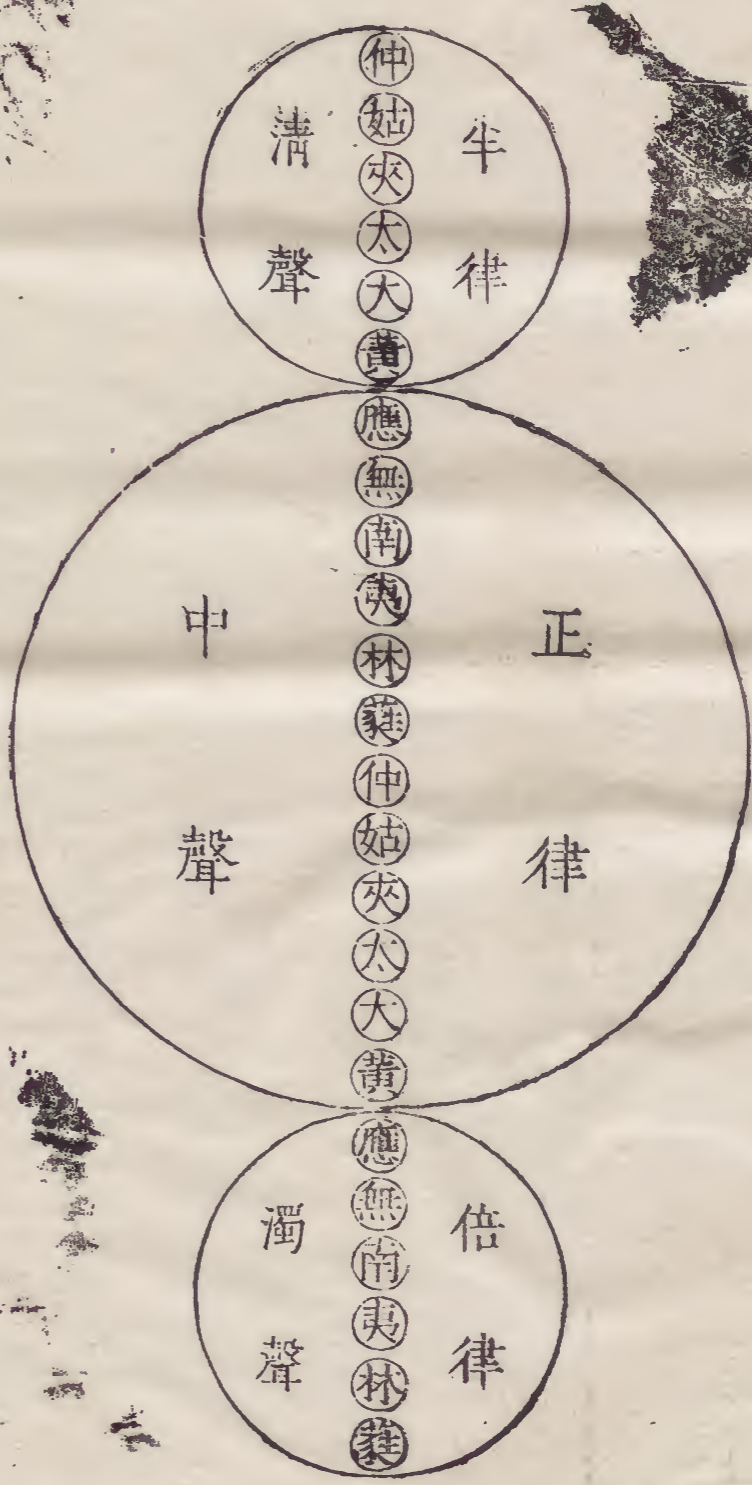 半律
仲姑夾太大黃
清聲
正律
應無南夷林蕤仲姑夾太大黃
中聲
倍律
應無南夷林蕤
濁聲